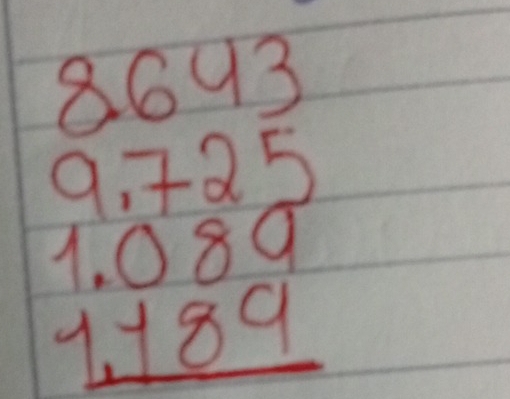 8.643
9.725
1.089
1.189